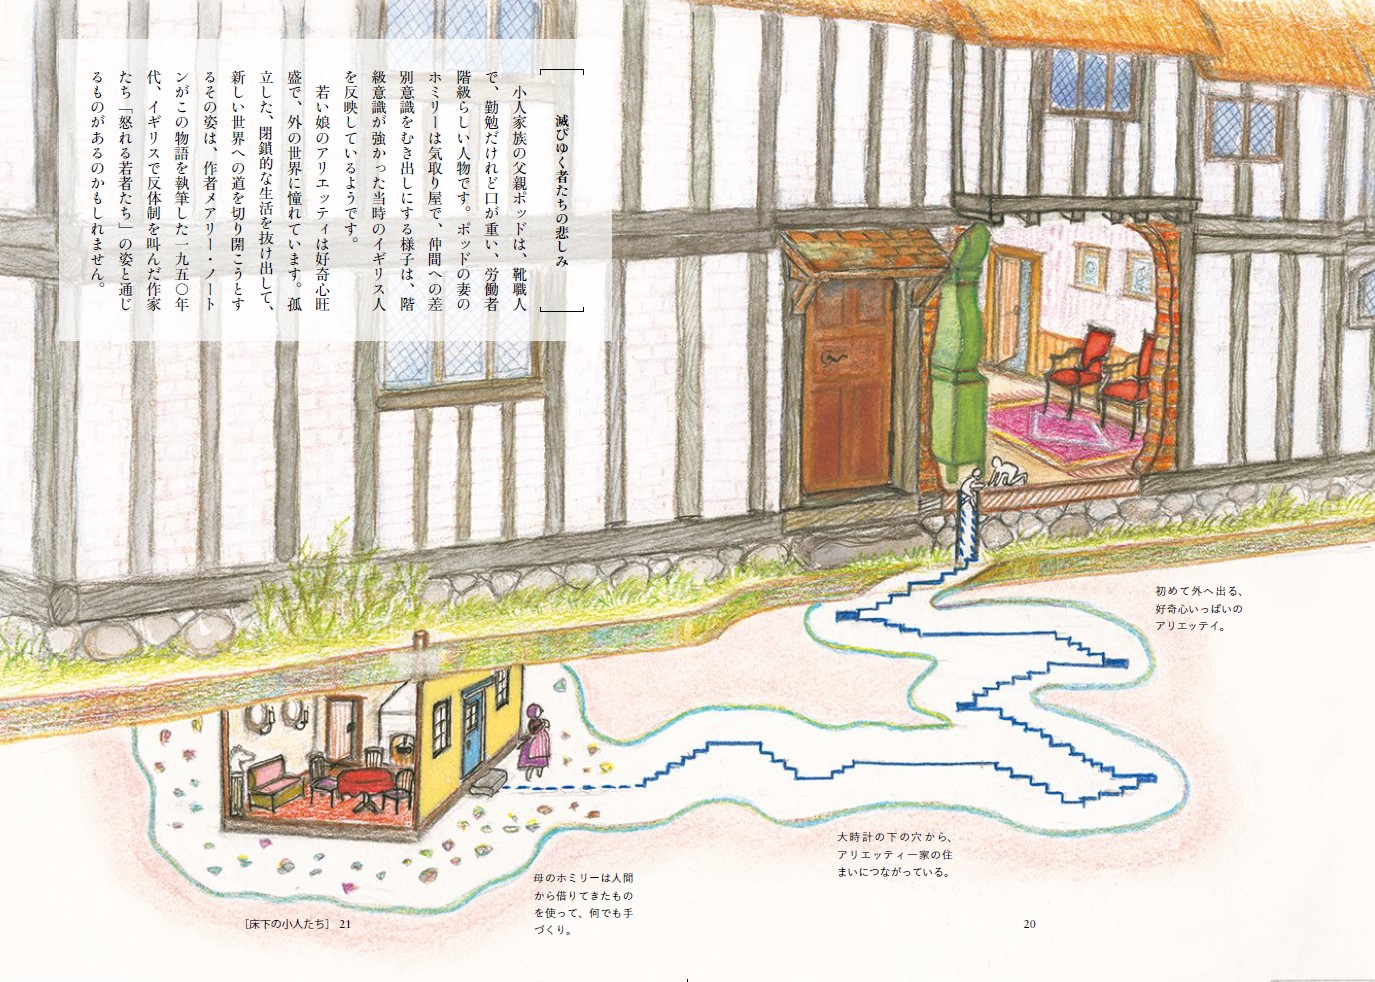 滅びゆく者たちの悲しみ
小人家族の父親ポッドは、靴職人
で、勤勉だけれど口が重い、労働者
階級らしい人物です。ポッドの妻の
ホミリーは気取り屋で、仲間への差
別意識をむき出しにする様子は、階
級意識が強かった当時のイギリス人
を反映しているようです。
若い娘のアリエッティは好奇心旺
盛で、外の世界に憧れています。孤
立した、閉鎖的な生活を抜け出して、
新しい世界への道を切り開こうとす
るその姿は、作者メアリー・ノート
ンがこの物語を執筆した一九五〇年
代、イギリスで反体制を叫んだ作家
たち「怒れる若者たち」の姿と通じ
るものがあるのかもしれません。
初めて外へ出る、
好奇心いっぱいの
アリエッテイ。
大時計の下の穴から、
アリエッティ一家の住
まいにつながっている。
母のホミリーは人間
から借りてきたもの
を使って、何でも手
づくり。
20
［床下の小人たち］ 21